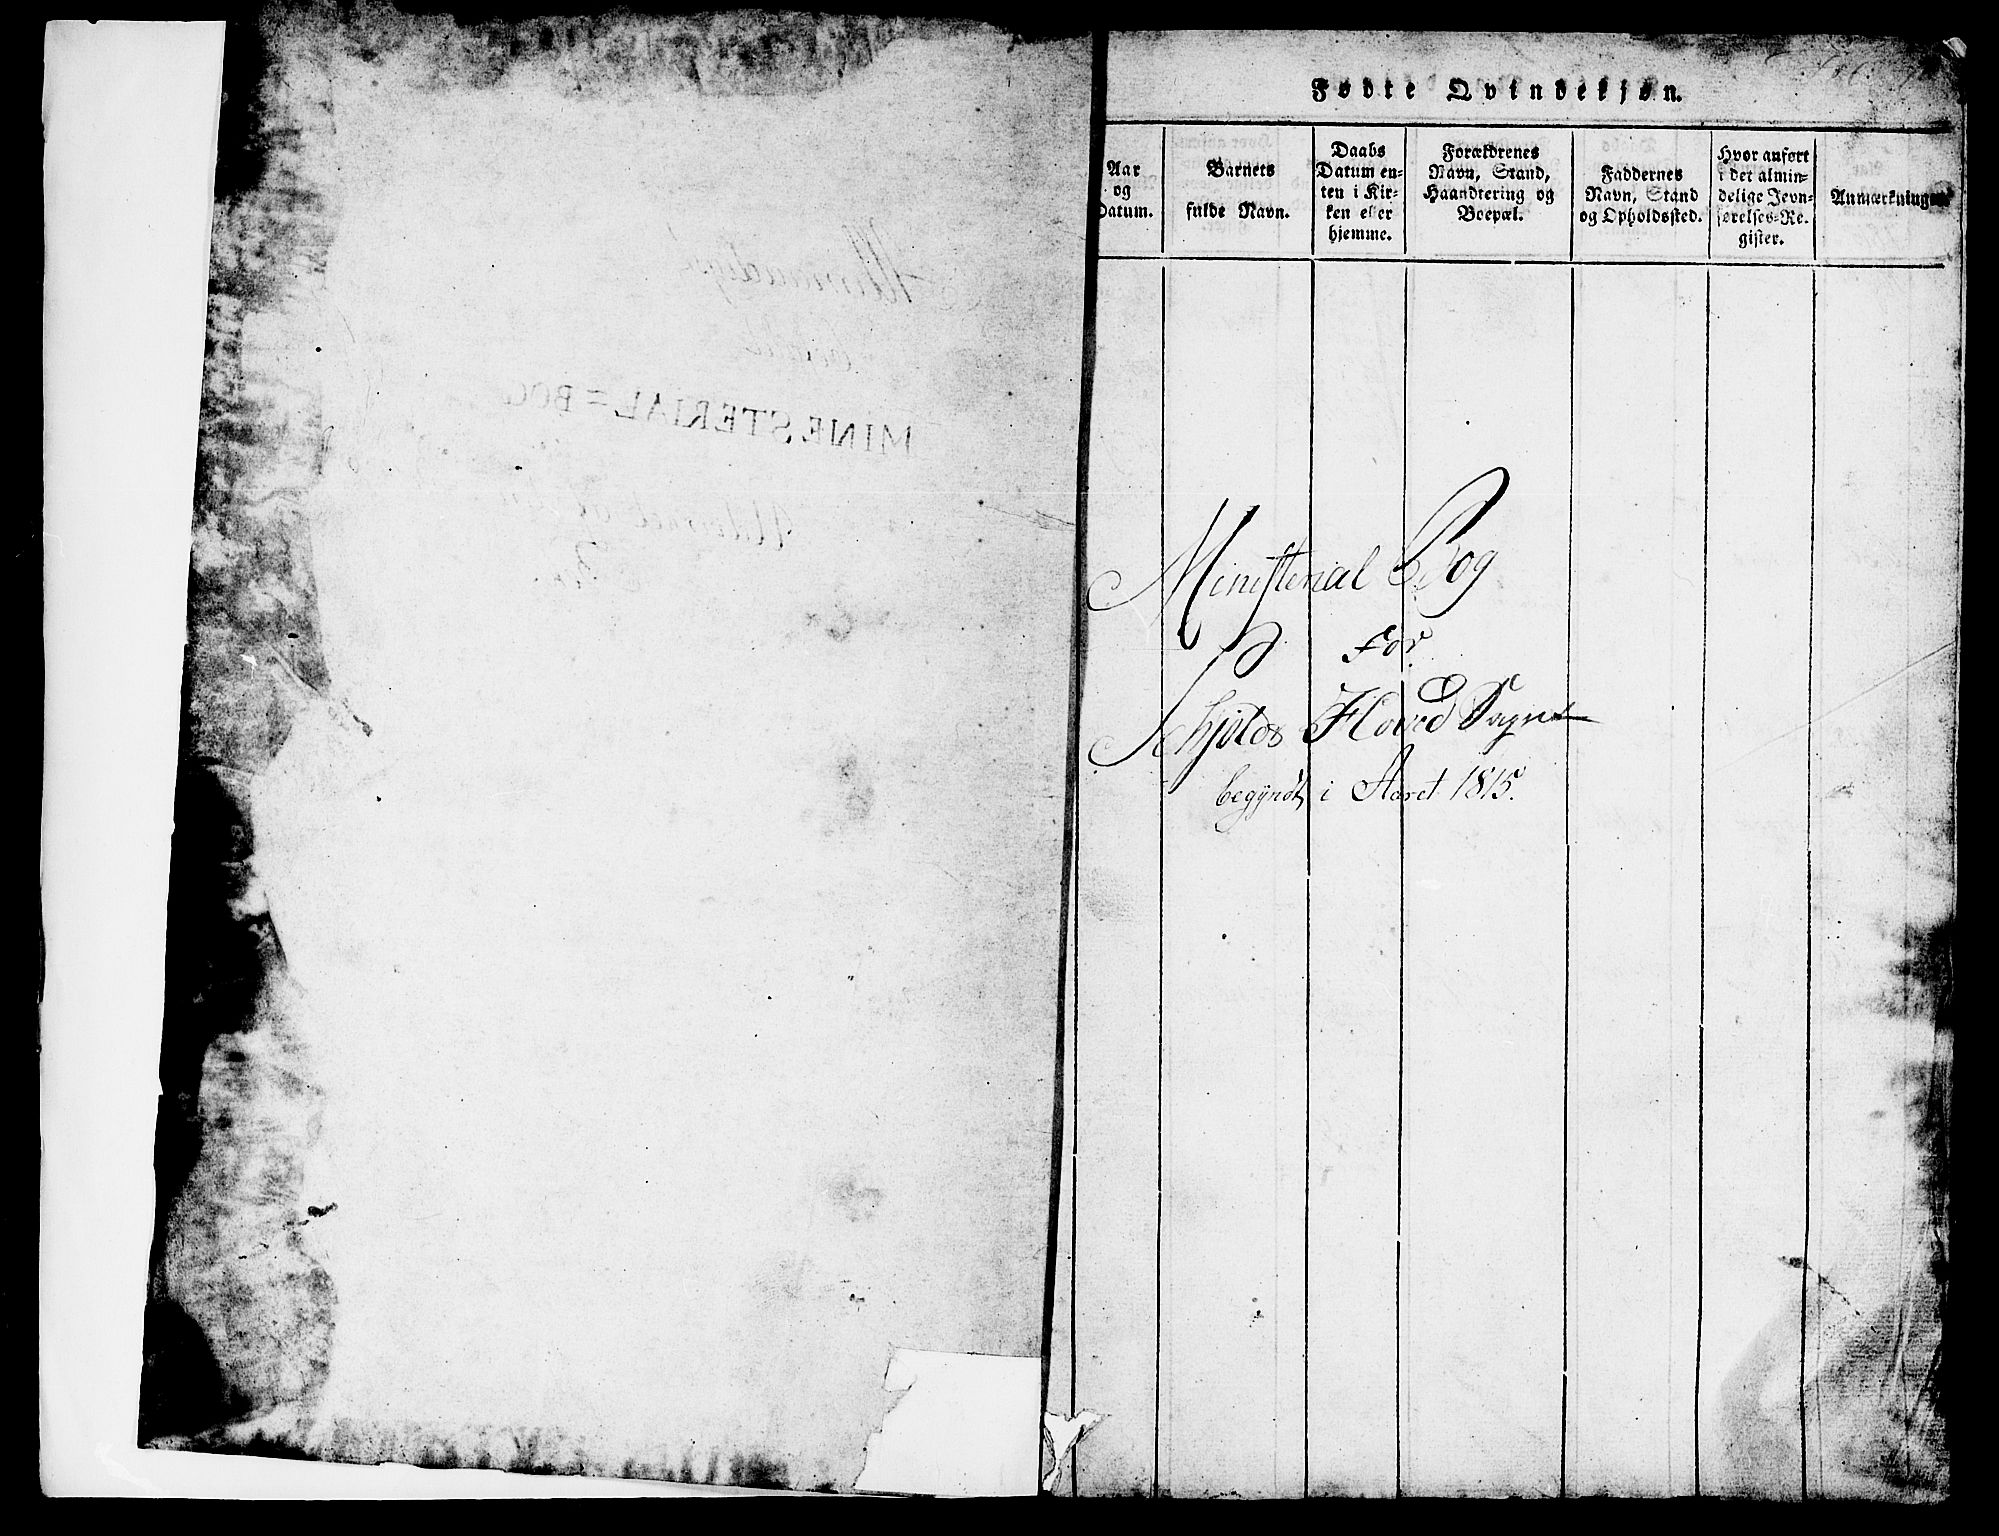 MINESTERIAL=BOG
Fødte Qvindekjøn.
Aar
og
Datum.
Barnets
fulde Navn.
Daabs
Datum en-
ten i Kir-
ken eller
hjemme.
Forældrenes
Navn, Stand,
Haandtering og
Boepæl.
Faddernes
Navn, Stand
og Opholdssted.
Hvor anført
i det almin-
delige Jevn-
førelses-Re-
gister.
Anmærkninger
Ministerial Bog
For
Schjolds Hoved Sogn
begyndt i Aaret 1815.